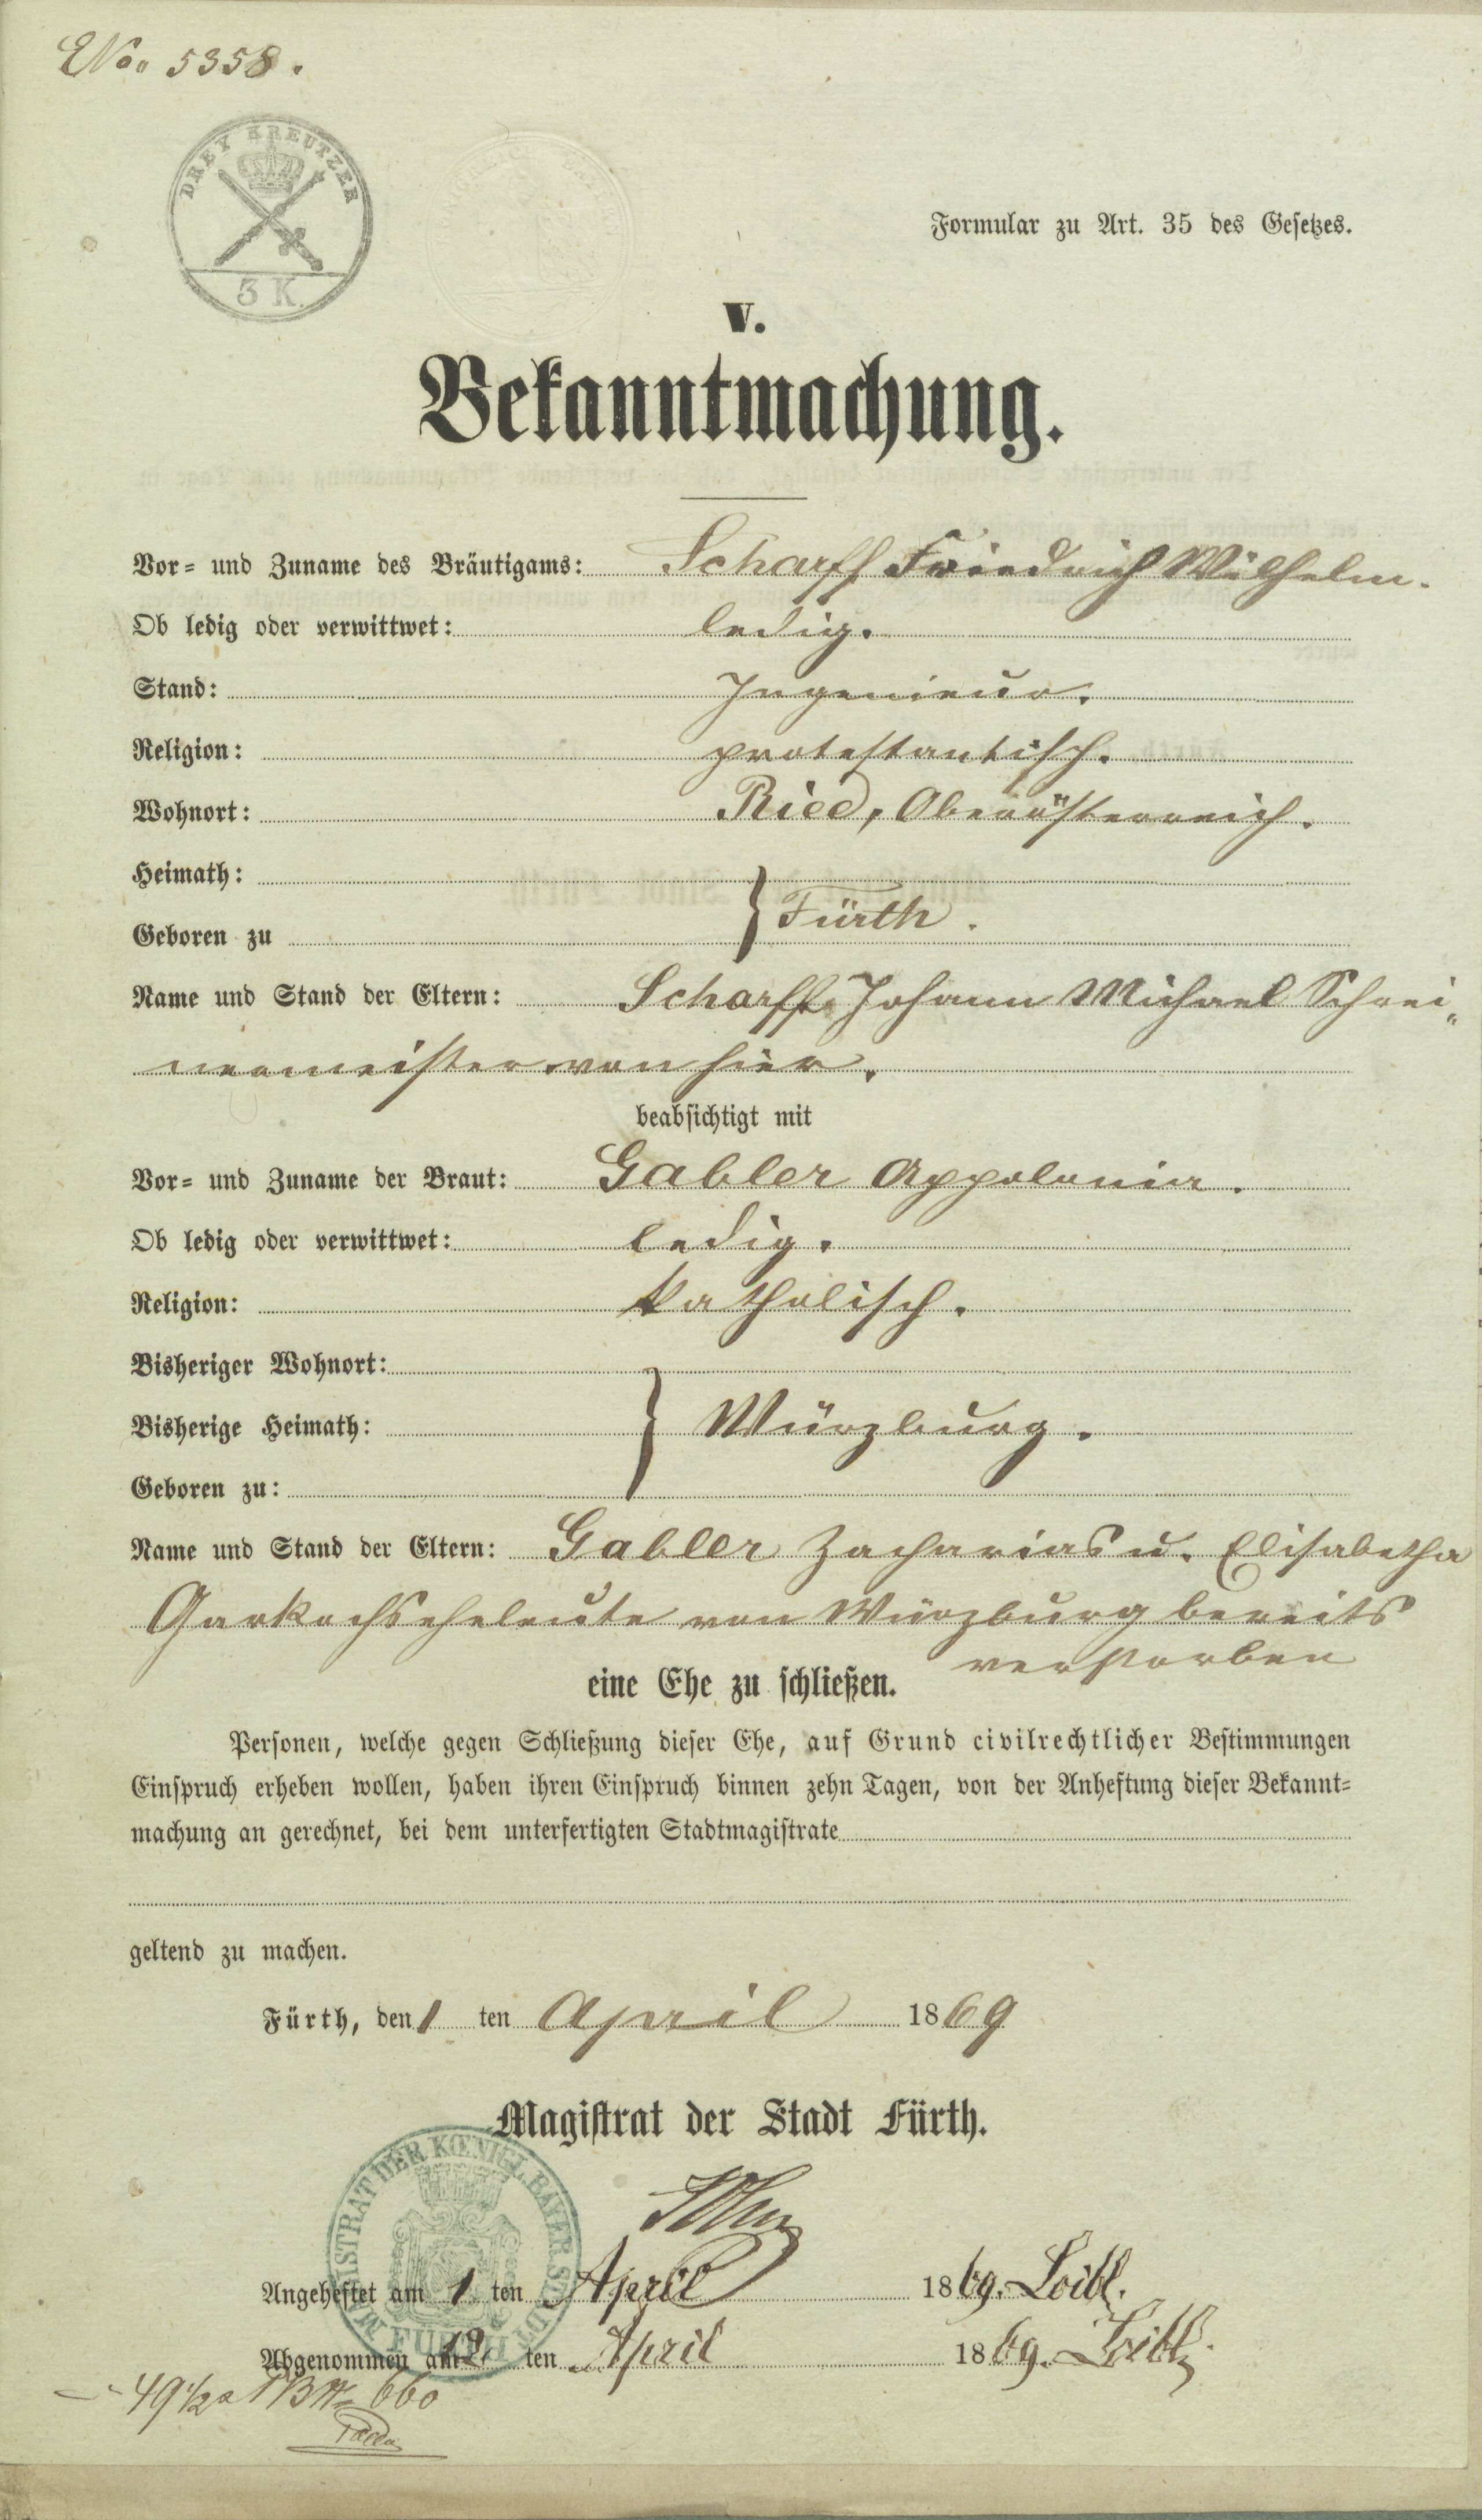 ENo. 5358.
DREY KREUTZER
3 K.
Formular zu Art. 35 des Gesetzes.
V.
Bekanntmachung.
Vor- und Zuname des Bräutigams: Scharff Friedrich Wilhelm.
Ob ledig oder verwittwet: ledig.
Stand: Ingenieur.
Religion: protestantisch.
Wohnort: Ried, Oberösterreich.
Heimath:
Geboren zu } Fürth.
Name und Stand der Eltern: Scharff Johann Michael Schrei-
nermeister von hier.
beabsichtigt mit
Vor- und Zuname der Braut: Gabler Appolonia.
Ob ledig oder verwittwet: ledig.
Religion: katholisch.
Bisheriger Wohnort:
Bisherige Heimath: } Würzburg.
Geboren zu:
Name und Stand der Eltern: Gabler Zacharias u. Elisabetha
Garkochseheleute von Würzburg bereits
verstorben
eine Ehe zu schließen.
Personen, welche gegen Schließung dieser Ehe, auf Grund civilrechtlicher Bestimmungen
Einspruch erheben wollen, haben ihren Einspruch binnen zehn Tagen, von der Anheftung dieser Bekannt-
machung an gerechnet, bei dem unterfertigten Stadtmagistrate
geltend zu machen.
Fürth, den 1 ten April 1869
Magistrat der Stadt Fürth.
MAGISTRAT DER KŒNIGL. BAYER. STADT FÜRTH
Angeheftet am 1 ten April 1869. Loibl.
Abgenommen am 12 ten April 1869. Loibl.
49 1/2 660